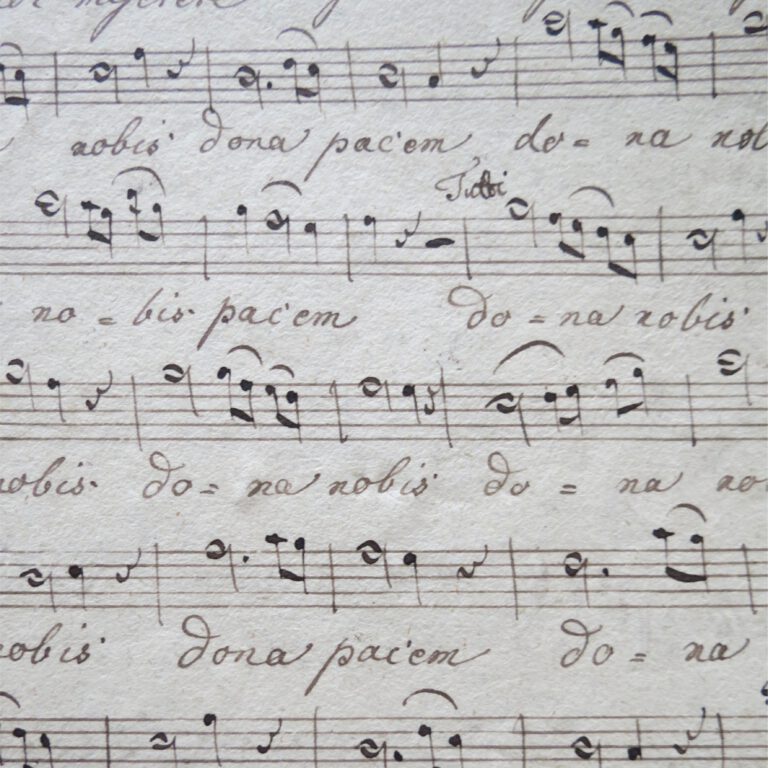 miserere
nobis dona pacem do = na
Tutti
no = bis pacem do = na nobis
nobis do = na nobis do = na
nobis dona pacem do = na